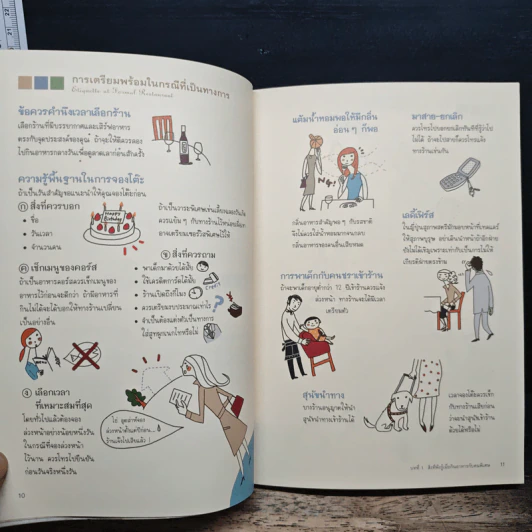 การเตรียมพร้อมในกรณีที่เป็นทางการ
Etiquette at Formal Restaurant
ข้อควรคำนึงเวลาเลือกร้าน
เลือกร้านที่มีบรรยากาศและเสิร์ฟอาหาร
ตรงกับจุดประสงค์ของคุณ ถ้าจุให้ดีควรลอง
ไปกินอาหารกลางวันเพื่อดูลาดเลาก่อนสักครั้ง
ความรู้พื้นฐานในการจองโต๊ะ
ถ้าเป็นวันสำคัญขอแนะนำให้คุณจองโต๊ะก่อน
ก สิ่งที่ควรบอก
• ชื่อ
• วันเวลา
• จำนวนคน
Happy
Birthday
ถ้าเป็นวาระพิเศษเช่นเลี้ยงฉลองวันเกิด
ควรแย้ม ๆ กับทางร้านไว้ก่อน
อาจเตรียมเซอร์ไพรส์พิเศษไว้ให้
ข สิ่งที่ควรถาม
• พาเด็กมาด้วยได้มั้ย
• ใช้เครดิตการ์ดได้มั้ย
• ร้านเปิดถึงกี่โมง
• ควรเตรียมงบประมาณเท่าไร
• จำเป็นต้องแต่งตัวเป็นทางการ
ใส่สูทผูกเนกไทหรือไม่
ค เช็กเมนูของคอร์ส
ถ้าเป็นอาหารคอร์สควรเช็กเมนูของ
อาหารไว้ก่อนจะดีกว่า ถ้ามีอาหารที่
กินไม่ได้จะได้บอกให้ทางร้านเปลี่ยน
เป็นอย่างอื่น
ง เลือกเวลา
ที่เหมาะสมที่สุด
โดยทั่วไปแล้วต้องจอง
ล่วงหน้าอย่างน้อยหนึ่งวัน
ในกรณีที่จองล่วงหน้า
ไว้นาน ควรโทรไปยืนยัน
ก่อนวันจริงหนึ่งวัน
โธ่ อุตส่าห์จอง
ล่วงหน้าตั้งแต่ปีก่อน...
ร้านเจ๊งไปเสียแล้ว !
10
แต้มน้ำหอมพอให้มีกลิ่น
อ่อน ๆ ก็พอ
กลิ่นอาหารสำคัญพอ ๆ กับรสชาติ
จึงไม่ควรใส่น้ำหอมมากจนกลบ
กลิ่นอาหารของคนอื่นเสียหมด
การพาเด็กกับคนชราเข้าร้าน
ถ้าจะพาเด็กอายุต่ำกว่า 12 ปีเข้าร้านควรแจ้ง
ล่วงหน้า ทางร้านจะได้มีเวลา
เตรียมตัว
สุนัขนำทาง
บางร้านอนุญาตให้นำ
สุนัขนำทางเข้าร้านได้
มาสาย-ยกเลิก
ควรโทรไปบอกยกเลิกทันทีที่รู้ว่าไป
ไม่ได้ ถ้าจะไปสายก็ควรโทรแจ้ง
ทางร้านเช่นกัน
เลดี้เฟิร์ส
เวลาจองโต๊ะควรเช็ก
กับทางร้านเสียก่อน
ว่าจะนำสุนัขนำทางเข้า
ด้วยได้หรือไม่
11